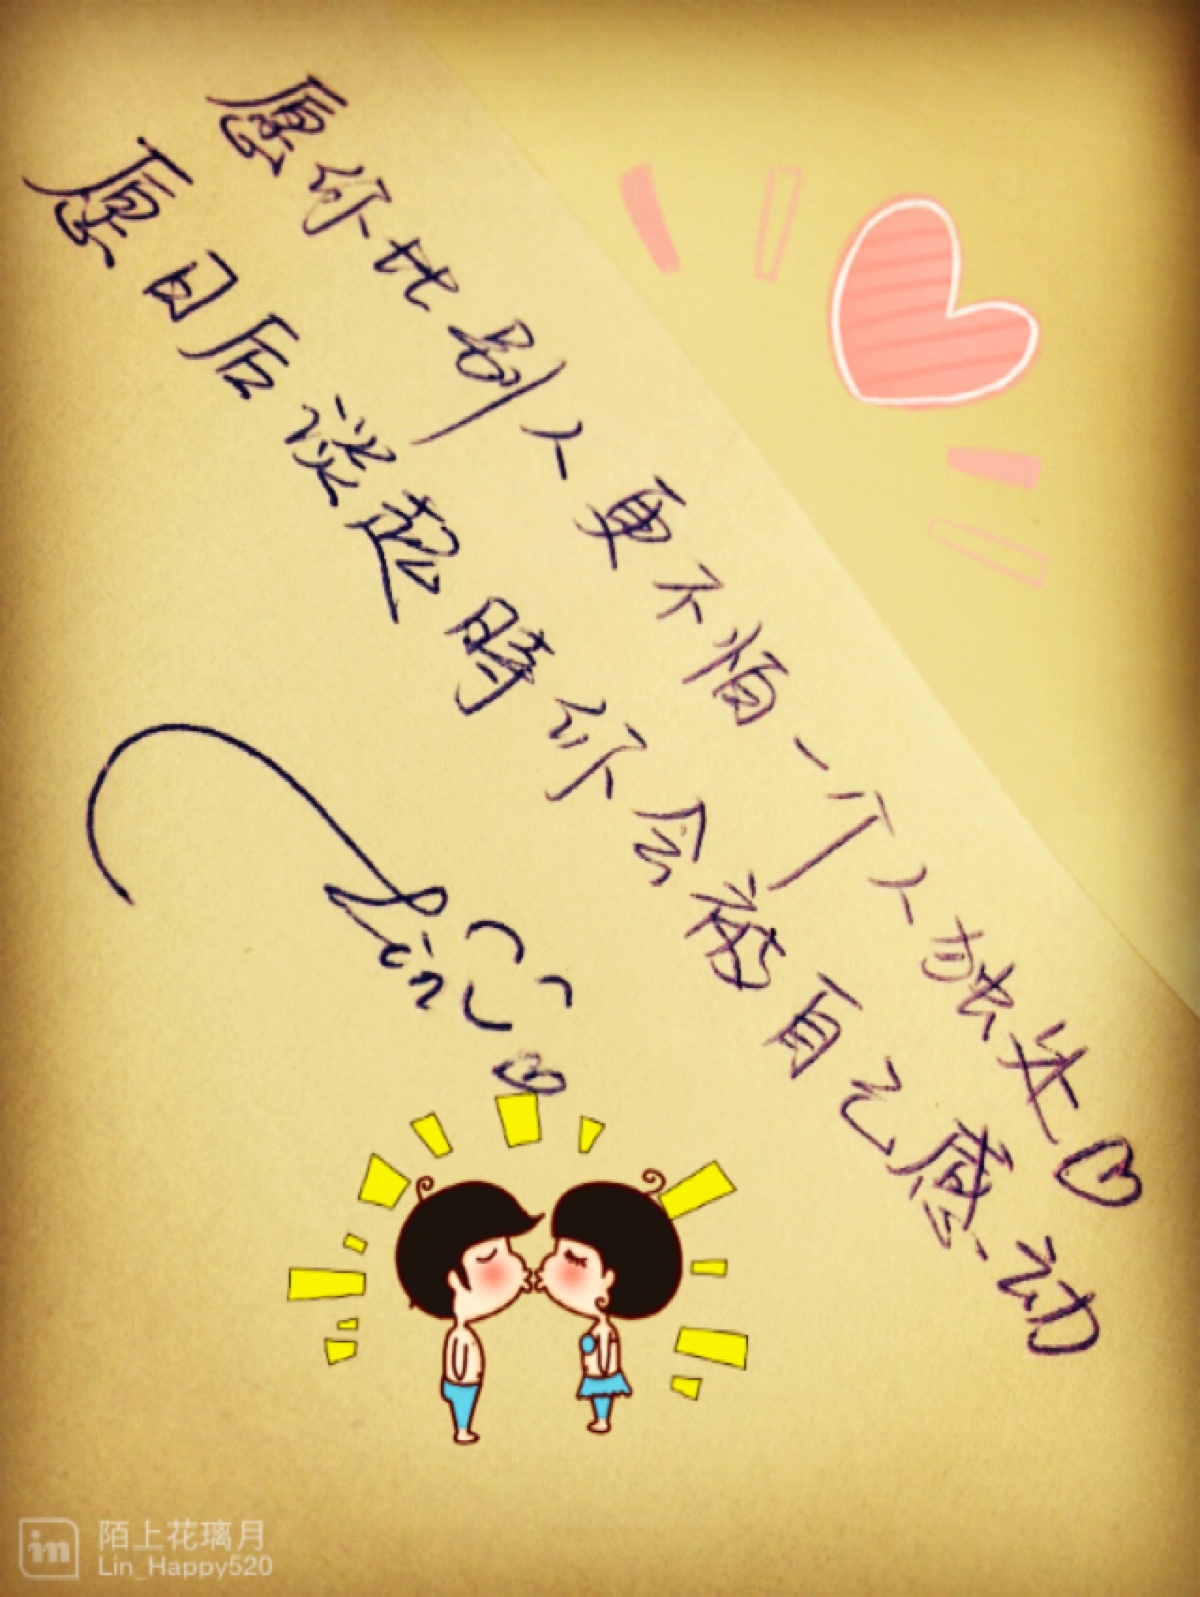 愿你比别人更不怕一个人独处
愿日后谈起時你会被自己感动
Lin
in 陌上花璃月
Lin_Happy520